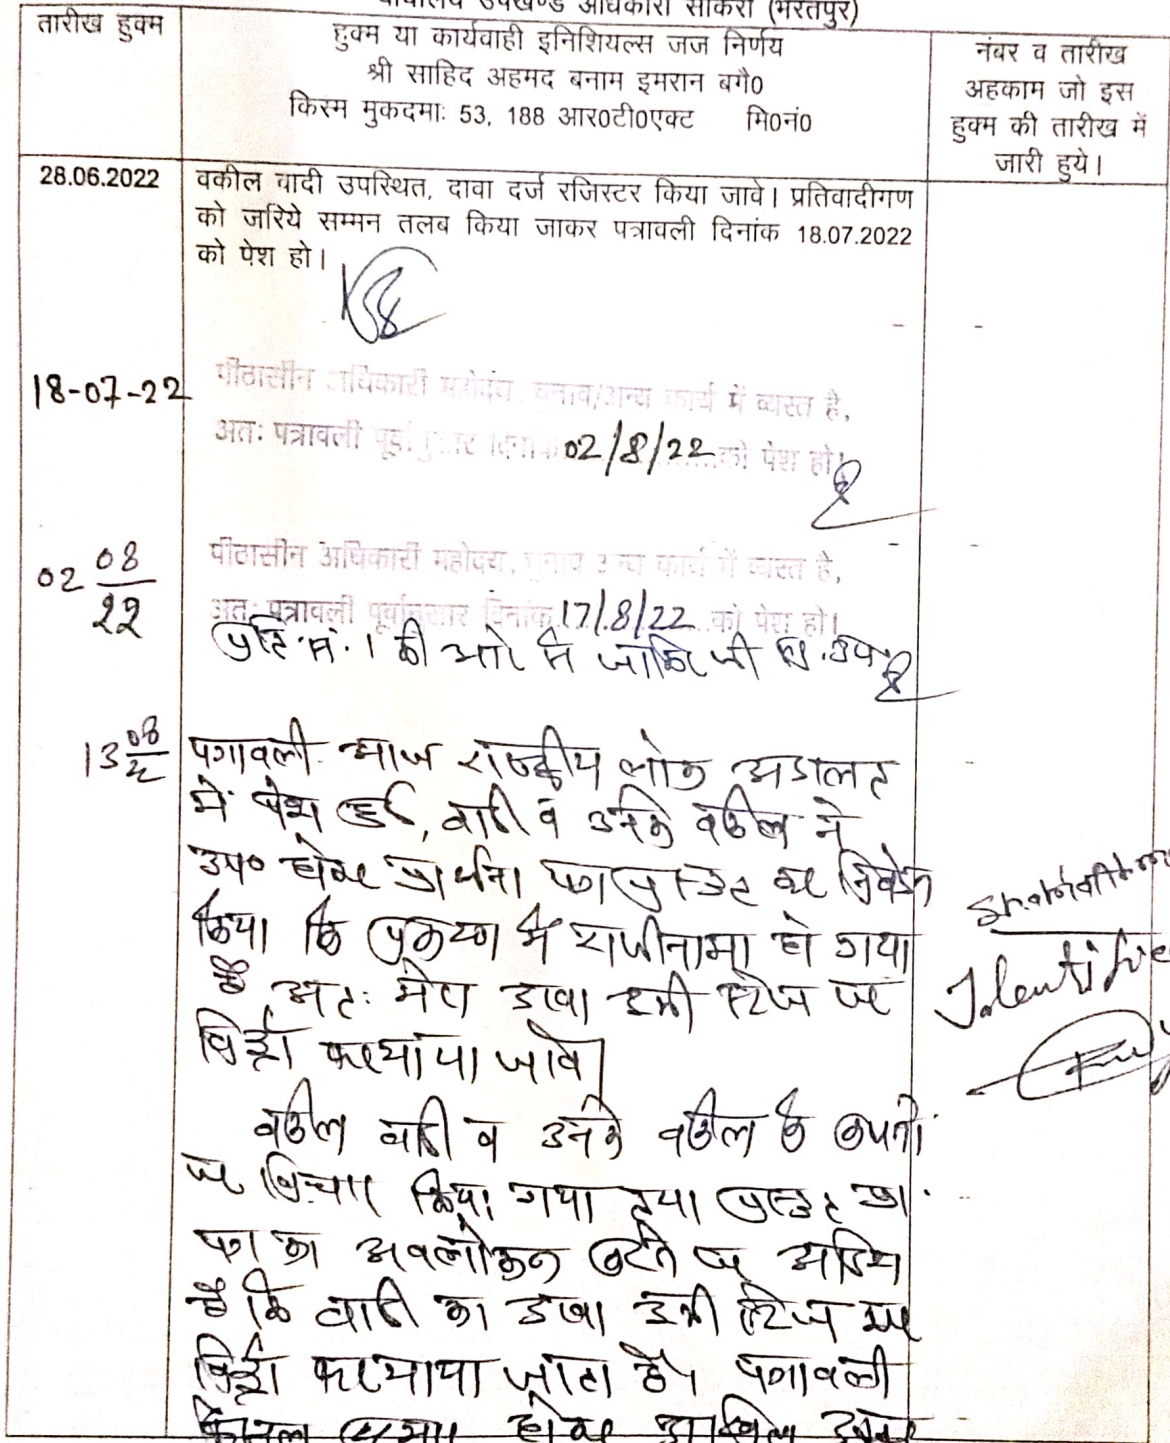 उपखण्ड अधिकारी सीकरी (भरतपुर)
तारीख हुक्म
हुक्म या कार्यवाही इनिशियल्स जज निर्णय
श्री साहिद अहमद बनाम इमरान बगै0
किस्म मुकदमाः 53, 188 आर0टी0एक्ट मि0नं0
नंबर व तारीख
अहकाम जो इस
हुक्म की तारीख में
जारी हुये।
28.06.2022
वकील वादी उपस्थित, दावा दर्ज रजिस्टर किया जावे। प्रतिवादीगण
को जरिये सम्मन तलब किया जाकर पत्रावली दिनांक 18.07.2022
को पेश हो।
18-07-22
पीठासीन अधिकारी महोदय, चुनाव/अन्य कार्य में व्यस्त है,
अतः पत्रावली पूर्वानुसार दिनांक 02/8/22 को पेश हो।
02 08/22
पीठासीन अधिकारी महोदय, चुनाव अन्य कार्य में व्यस्त है,
अतः पत्रावली पूर्वानुसार दिनांक 17/8/22 को पेश हो।
प्रति. सं. 1 की ओर से जी
13 08/22
पत्रावली आज राष्ट्रीय लोक अदालत
में पेश हुई, वादी व उनके वकील ने
उप० होकर प्रार्थना पत्र प्रस्तुत कर निवेदन
किया कि प्रकरण में राजीनामा हो गया
है अतः मेरा दावा इसी स्टेज पर
विड्रॉ फरमाया जावे।
वकील वादी व उनके वकील के कथनों
पर विचार किया गया तथा प्रस्तुत प्रा.
पत्र का अवलोकन करने पर आदेश
है कि वादी का दावा इसी स्टेज पर
विड्रॉ फरमाया जाता है। पत्रावली
फैसल शुमार होकर दाखिल दफ्तर